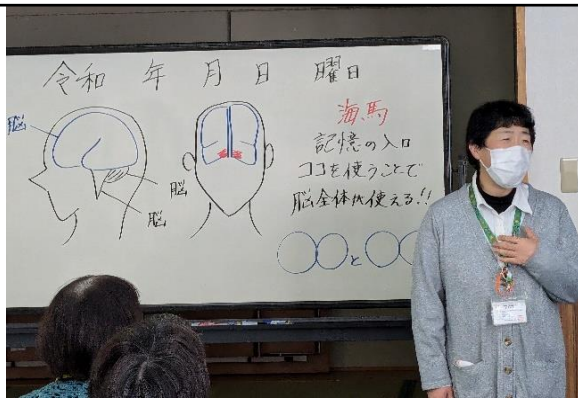 令和 年 月 日 曜日
脳
脳
脳
海馬
記憶の入口
ココを使うことで
脳全体も使える!!
○○と○○